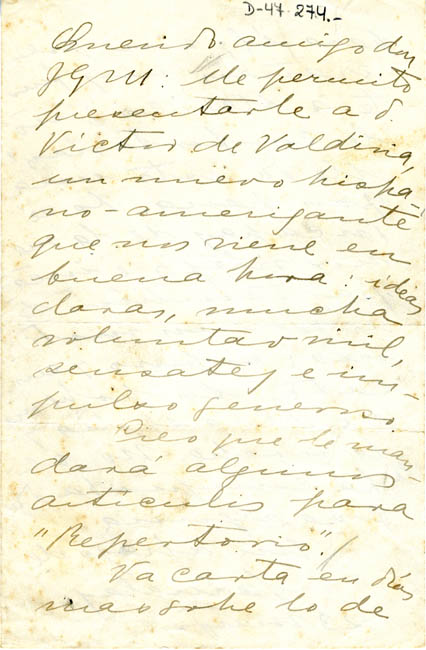 D-47-274.-
Querido amigo don
JGM: Me permito
presentarle a d.
Victor de Valdivia,
un nuevo hispa-
no-amerigante
que nos viene en
buena hora: ideas
claras, mucha
voluntad
sensatez e im-
pulso generoso
Creo que le man-
dará algunos
articulis para
"Repertorio"./
Va carta en días
mas sobre lo de